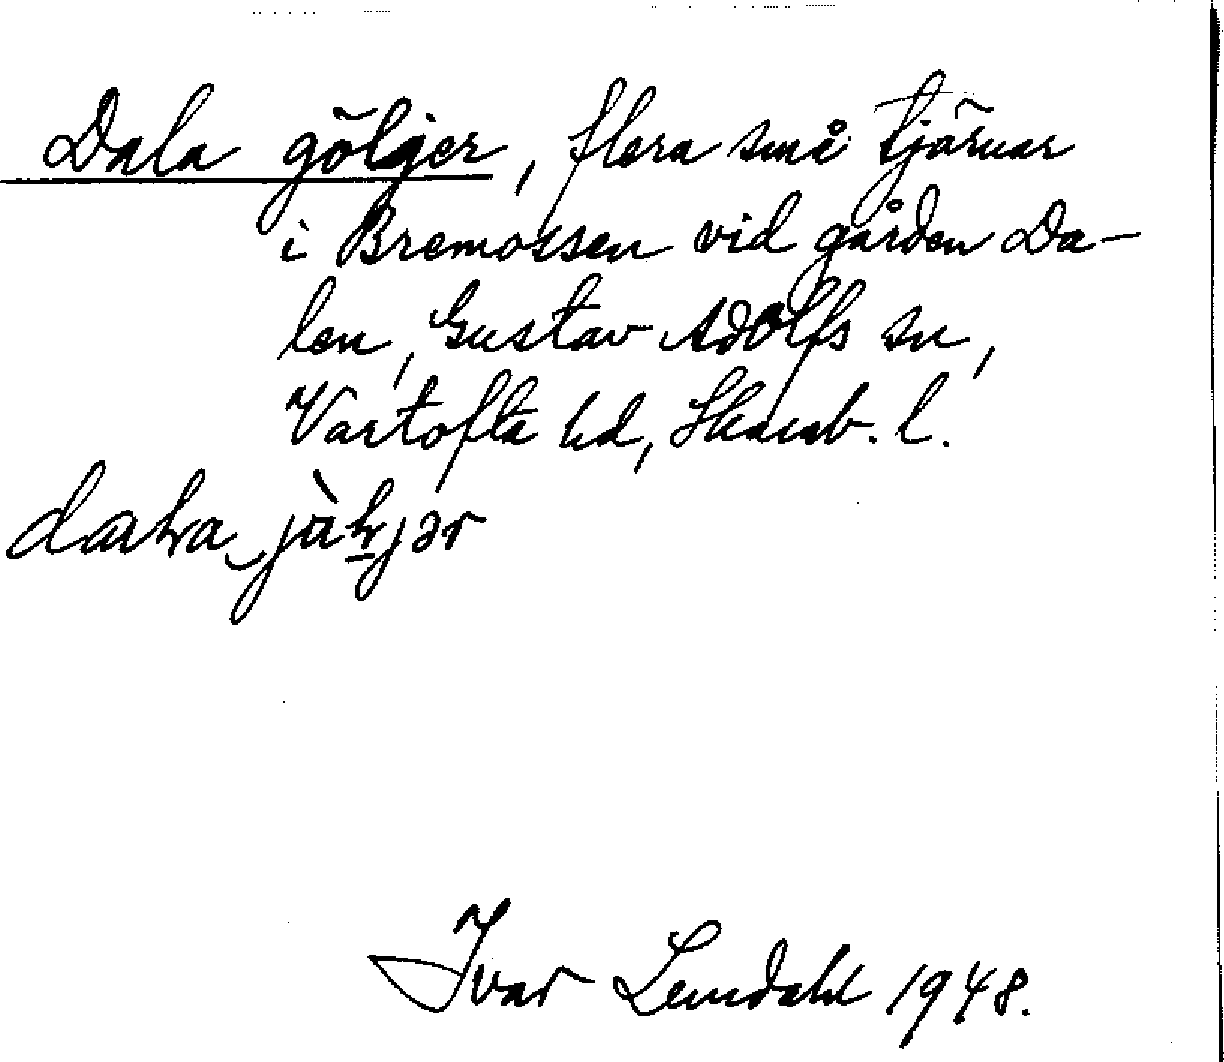 Dala göljer, flera små tjärnar
i Bremossen vid gården Da-
len, Gustav Adolfs sn,
Vartofta hd, Skarab. l.
Ivar Lundahl 1948.